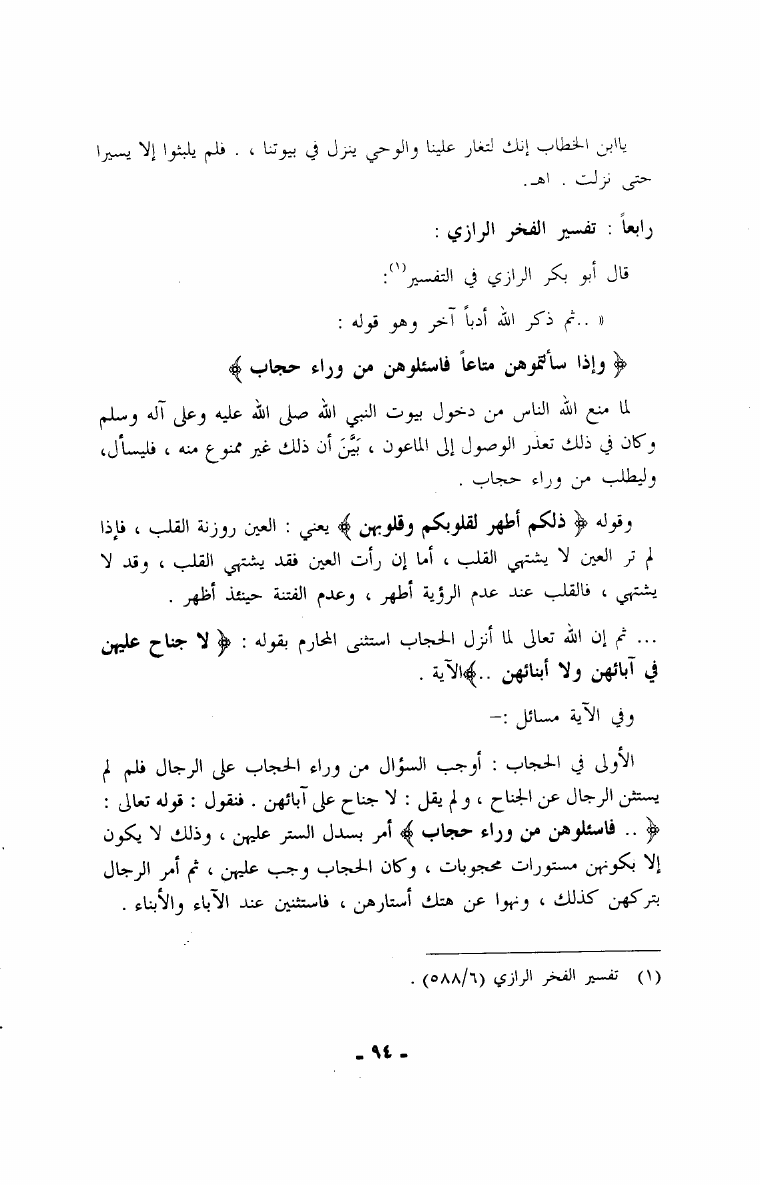 ياابن الخطاب إنك لتغار علينا والوحي ينزل في بيوتنا ، . فلم يلبثوا إلا يسيرا
حتى نزلت . اهـ.
رابعاً : تفسير الفخر الرازي :
قال أبو بكر الرازي في التفسير(١):
« ..ثم ذكر الله أدباً آخر وهو قوله :
﴿ وإذا سألتموهن متاعاً فاسئلوهن من وراء حجاب ﴾
لما منع الله الناس من دخول بيوت النبي الله صلى الله عليه وعلى آله وسلم
وكان في ذلك تعذر الوصول إلى الماعون ، بَيَّنَ أن ذلك غير ممنوع منه ، فليسأل،
وليطلب من وراء حجاب .
وقوله ﴿ ذلكم أطهر لقلوبكم وقلوبهن ﴾ يعني : العين روزنة القلب ، فإذا
لم تر العين لا يشتهي القلب ، أما إن رأت العين فقد يشتهي القلب ، وقد لا
يشتهي ، فالقلب عند عدم الرؤية أطهر ، وعدم الفتنة حينئذ أظهر .
... ثم إن الله تعالى لما أنزل الحجاب استثنى المحارم بقوله : ﴿ لا جناح عليهن
في آبائهن ولا أبنائهن ..﴾الآية .
وفي الآية مسائل :–
الأولى في الحجاب : أوجب السؤال من وراء الحجاب على الرجال فلم لم
يستثن الرجال عن الجناح ، ولم يقل : لا جناح على آبائهن . فنقول : قوله تعالى :
﴿ .. فاسئلوهن من وراء حجاب ﴾ أمر بسدل الستر عليهن ، وذلك لا يكون
إلا بكونهن مستورات محجوبات ، وكان الحجاب وجب عليهن ، ثم أمر الرجال
بتركهن كذلك ، ونهوا عن هتك أستارهن ، فاستثنين عند الآباء والأبناء .
(١) تفسير الفخر الرازي (٥٨٨/٦) .
- ٩٤ -